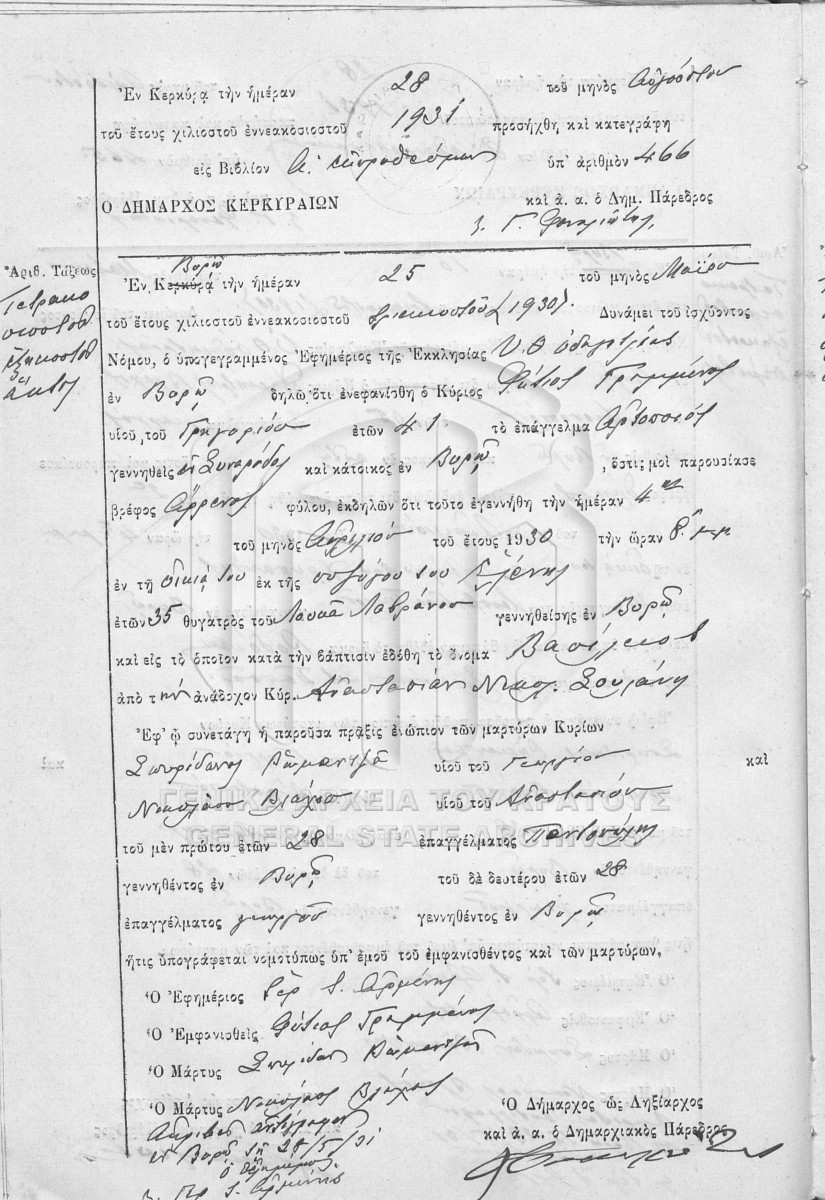 Ἐν Κερκύρᾳ τὴν ἡμέραν 28 τοῦ μηνὸς Αὐγούστου
τοῦ ἔτους χιλιοστοῦ ἐννεακοσιοστοῦ 1931 προσήχθη καὶ κατεγράφη
εἰς Βιβλίον Α. ὑπ' ἀριθμὸν 466
Ο ΔΗΜΑΡΧΟΣ ΚΕΡΚΥΡΑΙΩΝ καὶ ἀ. α. ὁ Δημ. Πάρεδρος
Γ.
Ἀριθ. Τάξεως
Τετρακο
σιοστὸν
ἑξηκοστὸν
ἕκτον
Ἐν Κερκύρᾳ τὴν ἡμέραν 25 τοῦ μηνὸς Μαΐου
τοῦ ἔτους χιλιοστοῦ ἐννεακοσιοστοῦ τριακοστοῦ (1930) Δυνάμει τοῦ ἰσχύοντος
Νόμου, ὁ ὑπογεγραμμένος Ἐφημέριος τῆς Ἐκκλησίας Υ. Θ. Ὁδηγητρίας
ἐν δηλῶ ὅτι ἐνεφανίσθη ὁ Κύριος Φώτιος Γραμμένος
υἱοῦ τοῦ Γρηγορίου ἐτῶν 41 τὸ ἐπάγγελμα Ἀρτοποιός
γεννηθεὶς ἐν Συναράδες καὶ κάτοικος ἐν , ὅστις μοὶ παρουσίασε
βρέφος ἄρρενος φύλου, ἐκδηλῶν ὅτι τοῦτο ἐγεννήθη τὴν ἡμέραν 4ην
τοῦ μηνὸς Ἀπριλίου τοῦ ἔτους 1930 τὴν ὥραν 8 μμ
ἐν τῇ οἰκίᾳ του ἐκ τῆς συζύγου του Ἑλένης
ἐτῶν 35 θυγατρὸς τοῦ Λουκᾶ Λαβράνου γεννηθείσης ἐν
καὶ εἰς τὸ ὁποῖον κατὰ τὴν βάπτισιν ἐδόθη τὸ ὄνομα Βασίλειος
ἀπὸ τὴν ἀνάδοχον Κύρ. Ἀναστασίαν Νικολ.
Ἐφ' ᾧ συνετάγη ἡ παροῦσα πρᾶξις ἐνώπιον τῶν μαρτύρων Κυρίων
Σπυρίδωνος υἱοῦ τοῦ Γεωργίου καὶ
Νικολάου Βλάχου υἱοῦ τοῦ Ἀναστασίου
ΓΕΝΙΚΑ ΑΡΧΕΙΑ ΤΟΥ ΚΡΑΤΟΥΣ
GENERAL STATE ARCHIVES
τοῦ μὲν πρώτου ἐτῶν 28 ἐπαγγέλματος Παντοπώλης
γεννηθέντος ἐν τοῦ δὲ δευτέρου ἐτῶν 28
ἐπαγγέλματος γεωργοῦ γεννηθέντος ἐν
ἥτις ὑπογράφεται νομοτύπως ὑπ' ἐμοῦ τοῦ ἐμφανισθέντος καὶ τῶν μαρτύρων,
Ὁ Ἐφημέριος Ἱερ.
Ὁ Ἐμφανισθεὶς Φώτιος Γραμμένος
Ὁ Μάρτυς Σπυρίδων
Ὁ Μάρτυς Νικόλαος Βλάχος
Ὁ Δήμαρχος ὡς Ληξίαρχος
καὶ ἀ. α. ὁ Δημαρχιακὸς Πάρεδρος
Ἀκριβὲς ἀντίγραφον
Ὁ Ἐφημέριος